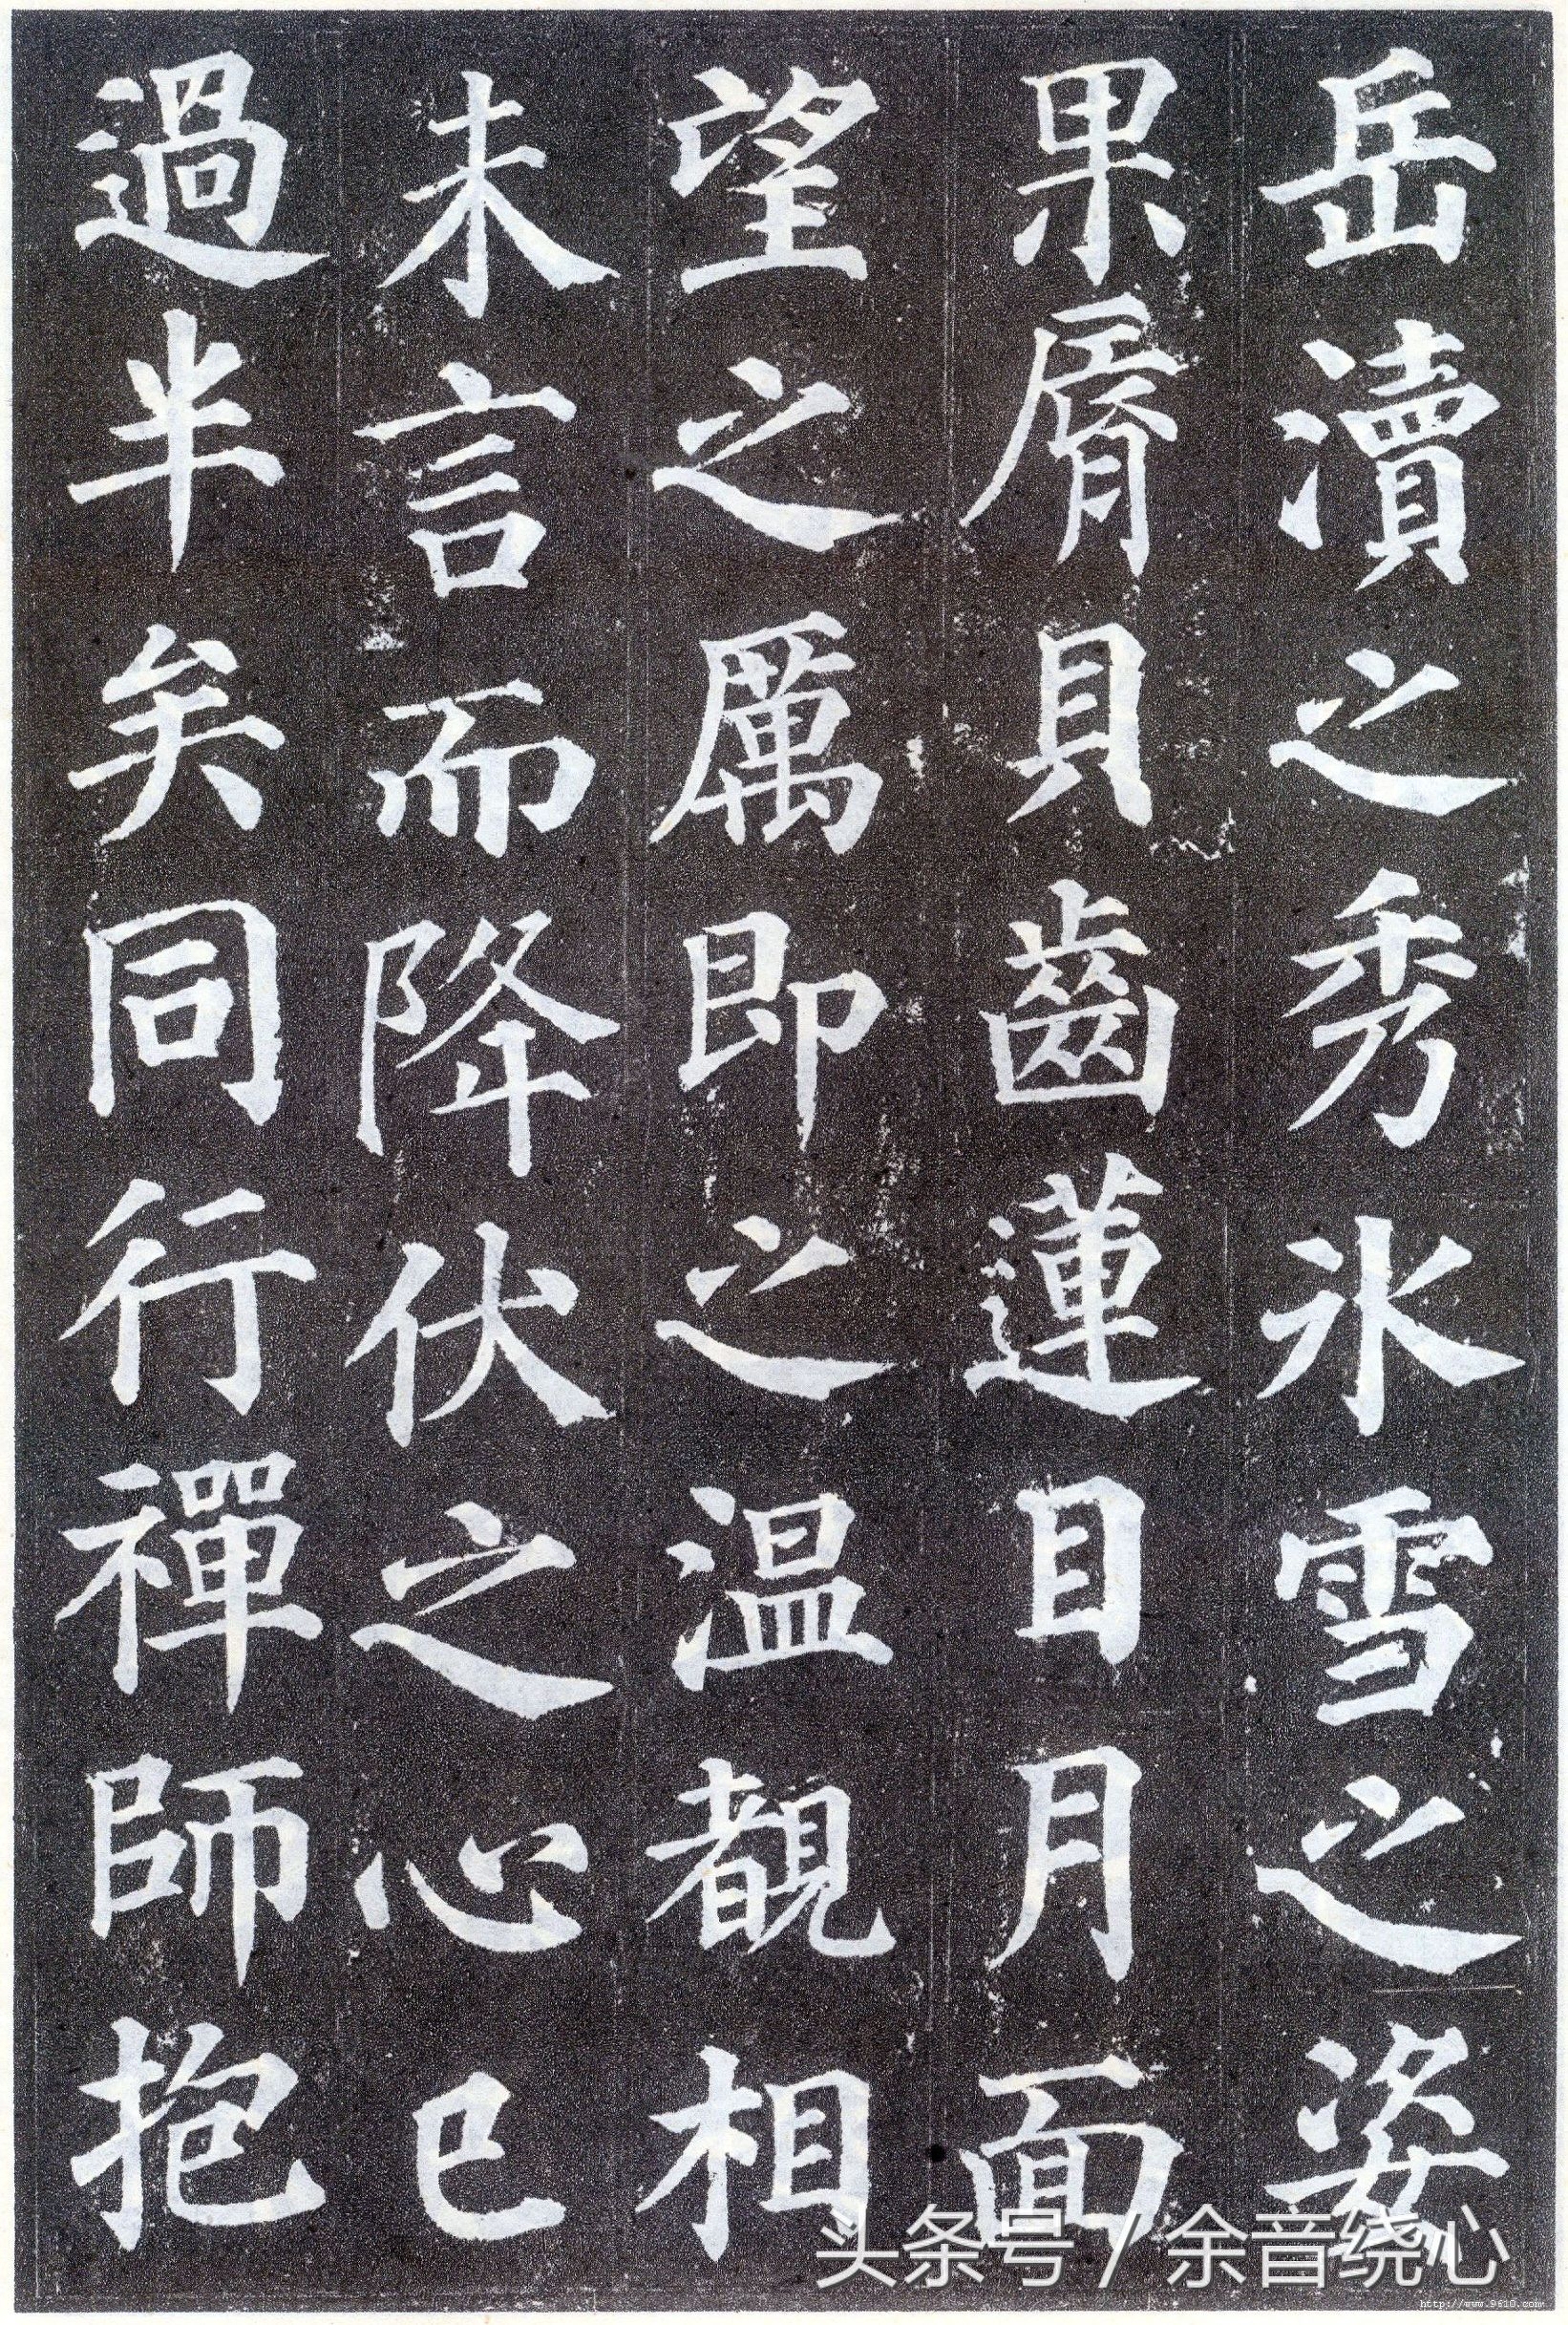 岳瀆之秀冰雪之姿
果脣貝齒蓮目月面
望之厲即之温覩相
未言而降伏之心已
過半矣同行禪師抱
头条号/余音绕心
http://www.9610.com